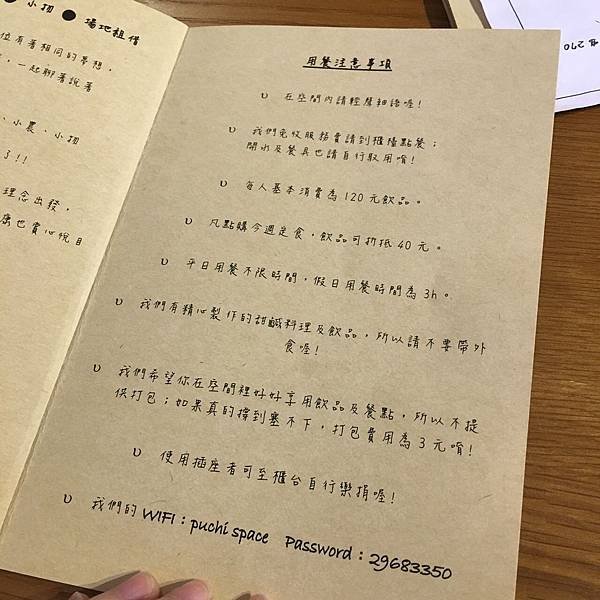 小物 ● 場地租借
位有著相同的夢想，
，一起聊著說著
、小農、小物
了!!
理念出發，
麼也賞心悅目
用餐注意事項
υ 在空間內請輕聲細語喔!
υ 我們免收服務費請到櫃檯點餐；
開水及餐具也請自行取用唷!
υ 每人基本消費為 120 元飲品。
υ 凡點購今週定食，飲品可折抵 40 元。
υ 平日用餐不限時間，假日用餐時間為 3h。
υ 我們有精心製作的甜鹹料理及飲品，所以請不要帶外
食喔!
υ 我們希望你在空間裡好好享用飲品及餐點，所以不提
供打包；如果真的撐到塞不下，打包費用為 3 元唷!
υ 使用插座者可至櫃台自行樂捐喔!
υ 我們的 WIFI：puchi space Password：29683350
270